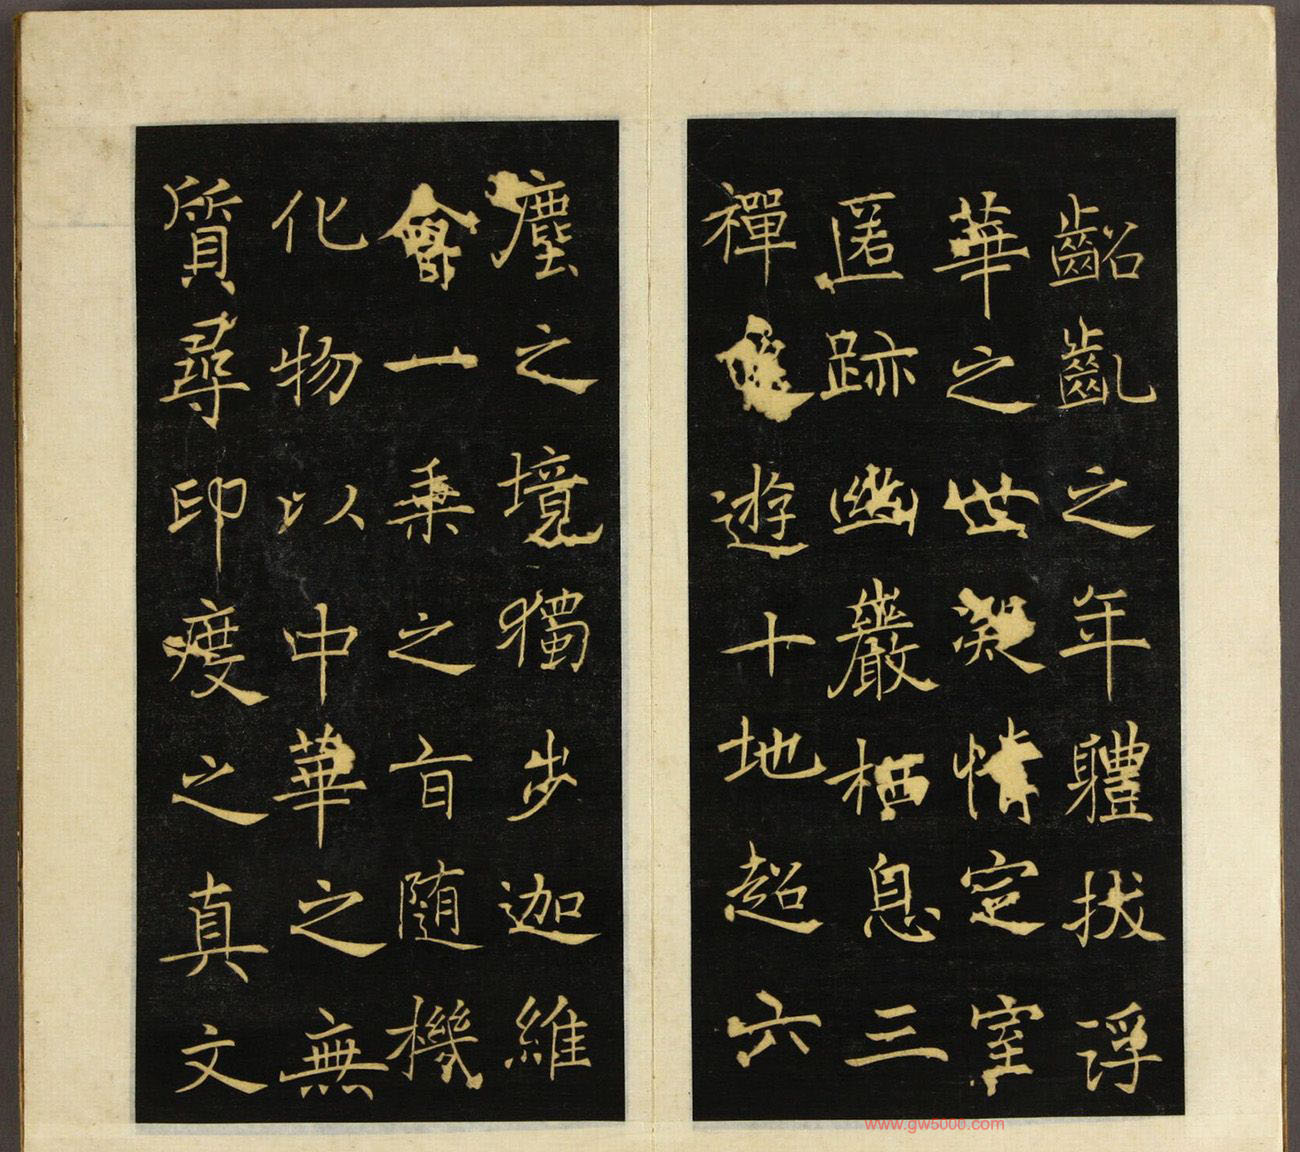 齠齔之年體拔浮
華之世凝情定室
匿跡幽巖栖息三
禪遊十地超六
塵之境獨步迦維
會一乘之旨隨機
化物以中華之無
質尋印度之真文
www.gw5000.com